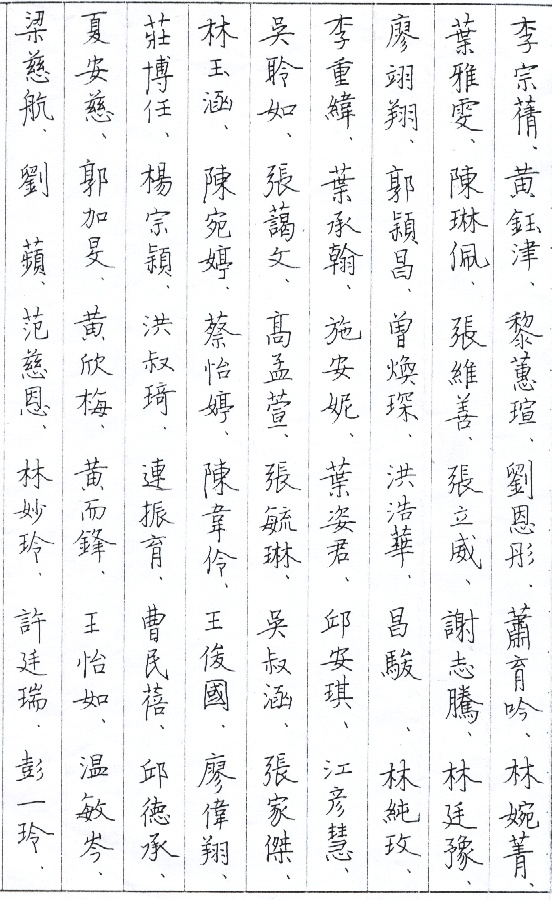 李宗蒨、黃鈺津、黎蕙瑄、劉恩彤、蕭育吟、林婉菁、
葉雅雯、陳琳佩、張維善、張立威、謝志騰、林廷豫、
廖翊翔、郭穎昌、曾煥琛、洪浩華、昌駿、林純玫、
李重緯、葉承翰、施安妮、葉姿君、邱安琪、江彥慧、
吳聆如、張藹文、高孟萱、張毓琳、吳叔涵、張家傑、
林玉涵、陳宛婷、蔡怡婷、陳韋伶、王俊國、廖偉翔、
莊博任、楊宗穎、洪叔琦、連振育、曹民蓓、邱德承、
夏安慈、郭加旻、黃欣梅、黃而鋒、王怡如、温敏岑、
梁慈航、劉蘋、范慈恩、林妙玲、許廷瑞、彭一玲、